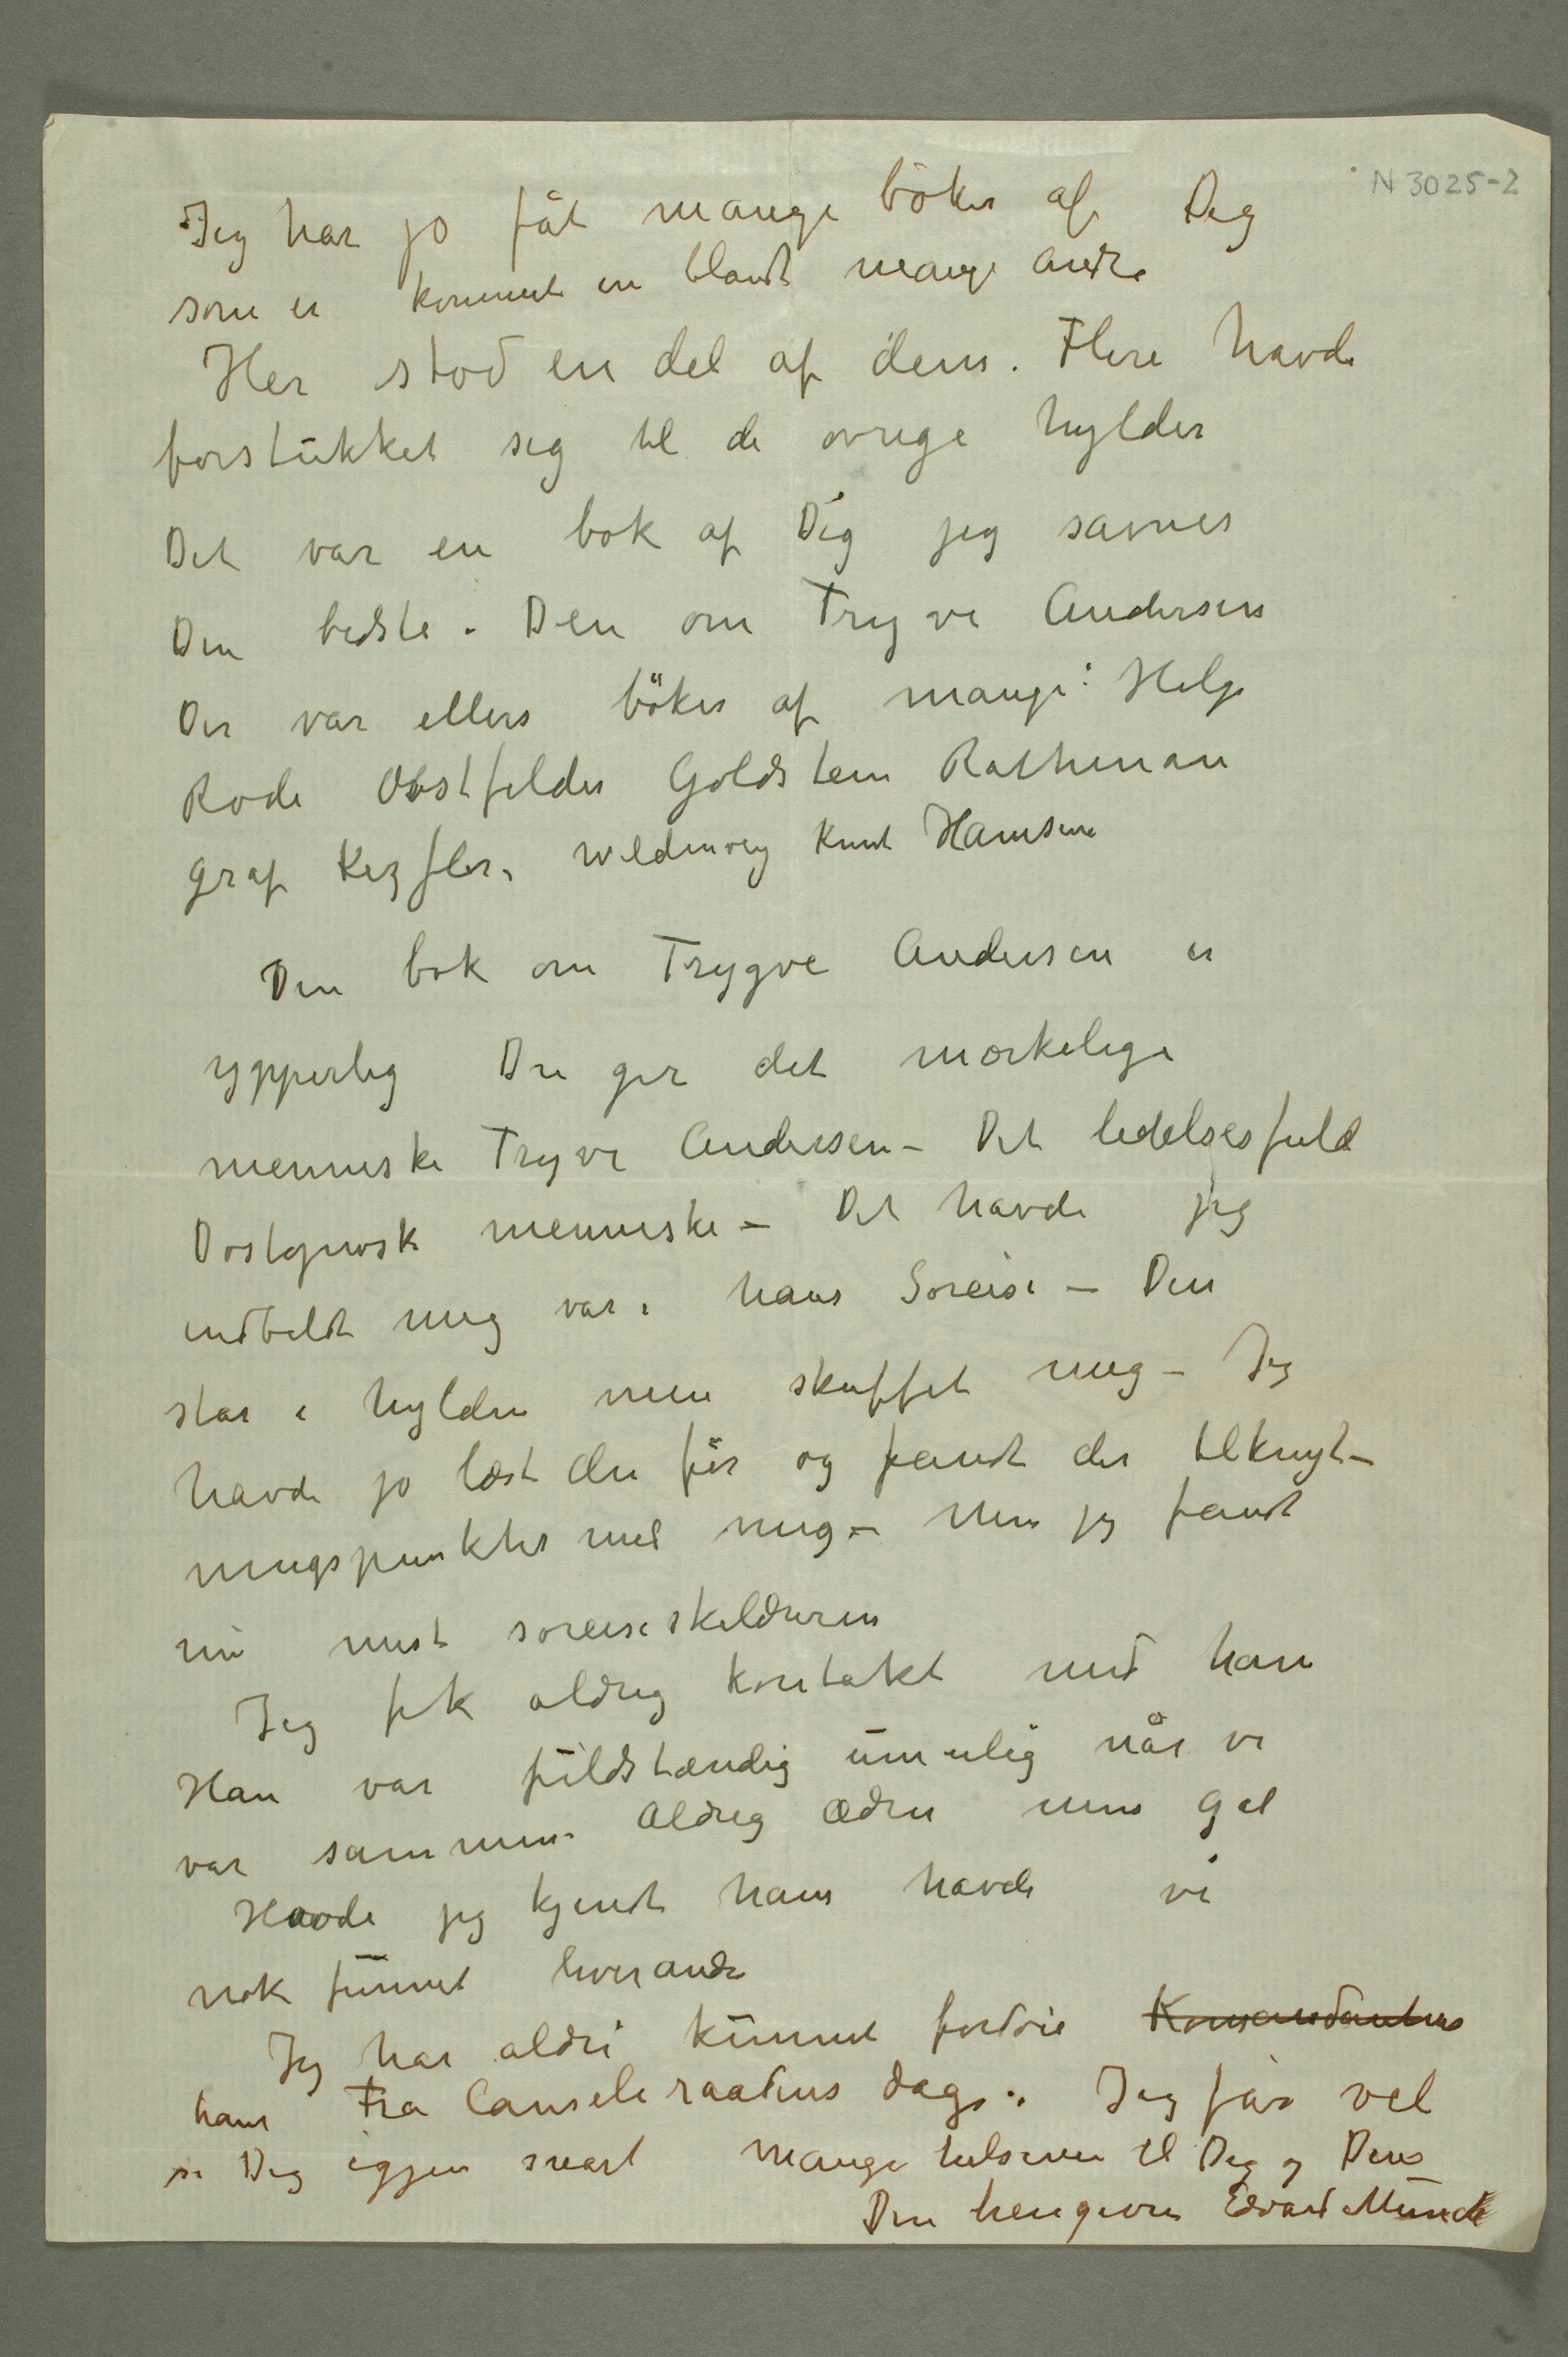 N 3025-2
Jeg har jo fåt mange bøker af Dig
som er kommet in blandt mange andre
Her stod en del af dem. Flere havde
forstukket sig til de ovrige hylder
Det var en bok af Dig jeg savnet
Den bedste. Den om Tryve Andersen
Der var ellers bøker af mange: Helge
Rode Obstfelder Goldstein Rathenau
graf Kezsler, Wildenvey Knut Hamsun
Din bok om Trygve Andersen er
ypperlig Du gir det mærkelige
menneske Tryve Andersen – Det lidelsesfuld
Dostojewsk menneske – Det havde jeg
indbildt mig var i hans Soreise – Den
står i hylden men skuffet mig – Jeg
havde jo læst den før og fandt der tilknyt-
ningspunkter med mig – Men jeg fandt
nu mest soreiseskildreren
Jeg fik aldrig kontakt med han
Han var fuldstændig umulig når vi
var sammen. Aldrig ædru men gal
Havde jeg kjendt ham havde vi
nok funnet hverandre
Jeg har aldri kunnet fordøie Komandanten
hans Fra Canseleraadens dage. Jeg får vel
se Dig igjen snart Mange hilsener til Dig og Dine
Din hengivne Edvard Munch